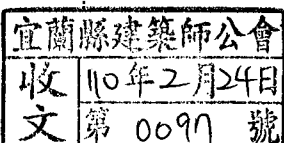 宜蘭縣建築師公會
收文
110年2月24日
第 0097 號